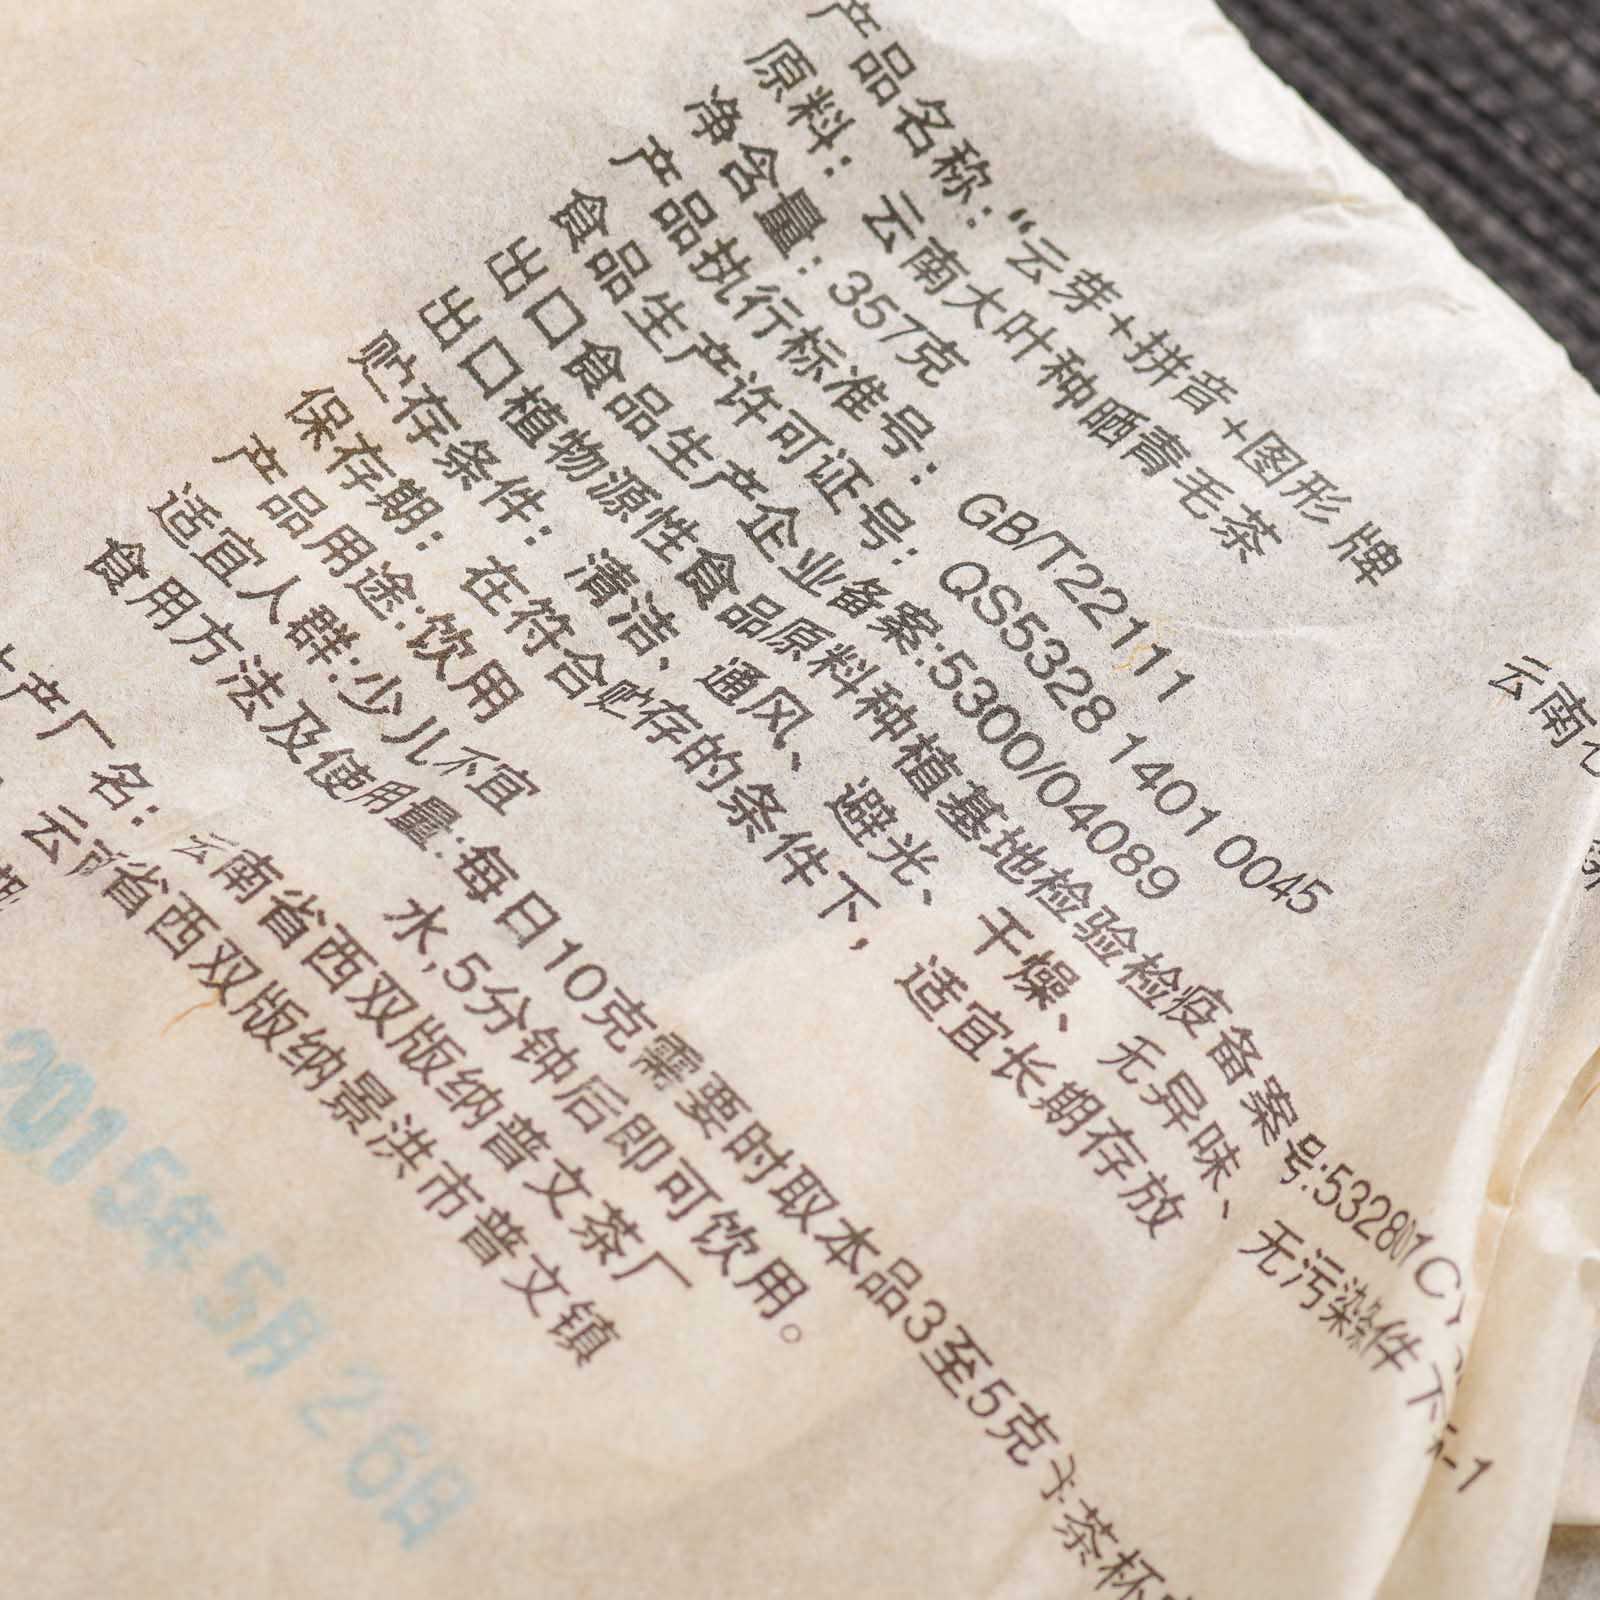 产品名称：“云芽+拼音+图形 牌
原料： 云南大叶种晒青毛茶
净含量：357克
产品执行标准号： GB/T22111
食品生产许可证号： QS5328 1401 0045
出口食品生产企业备案:5300/04089
出口植物源性食品原料种植基地检验检疫备案号:532801C
贮存条件： 清洁、通风、避光、干燥、无异味、无污染条件下
保存期： 在符合贮存的条件下，适宜长期存放
产品用途:饮用
适宜人群:少儿不宜
食用方法及使用量:每日10克需要时取本品3至5克 茶杯
水,5分钟后即可饮用。
生产厂名：云南省西双版纳普文茶厂
云南省西双版纳景洪市普文镇
2015年5月26日
云南
-1